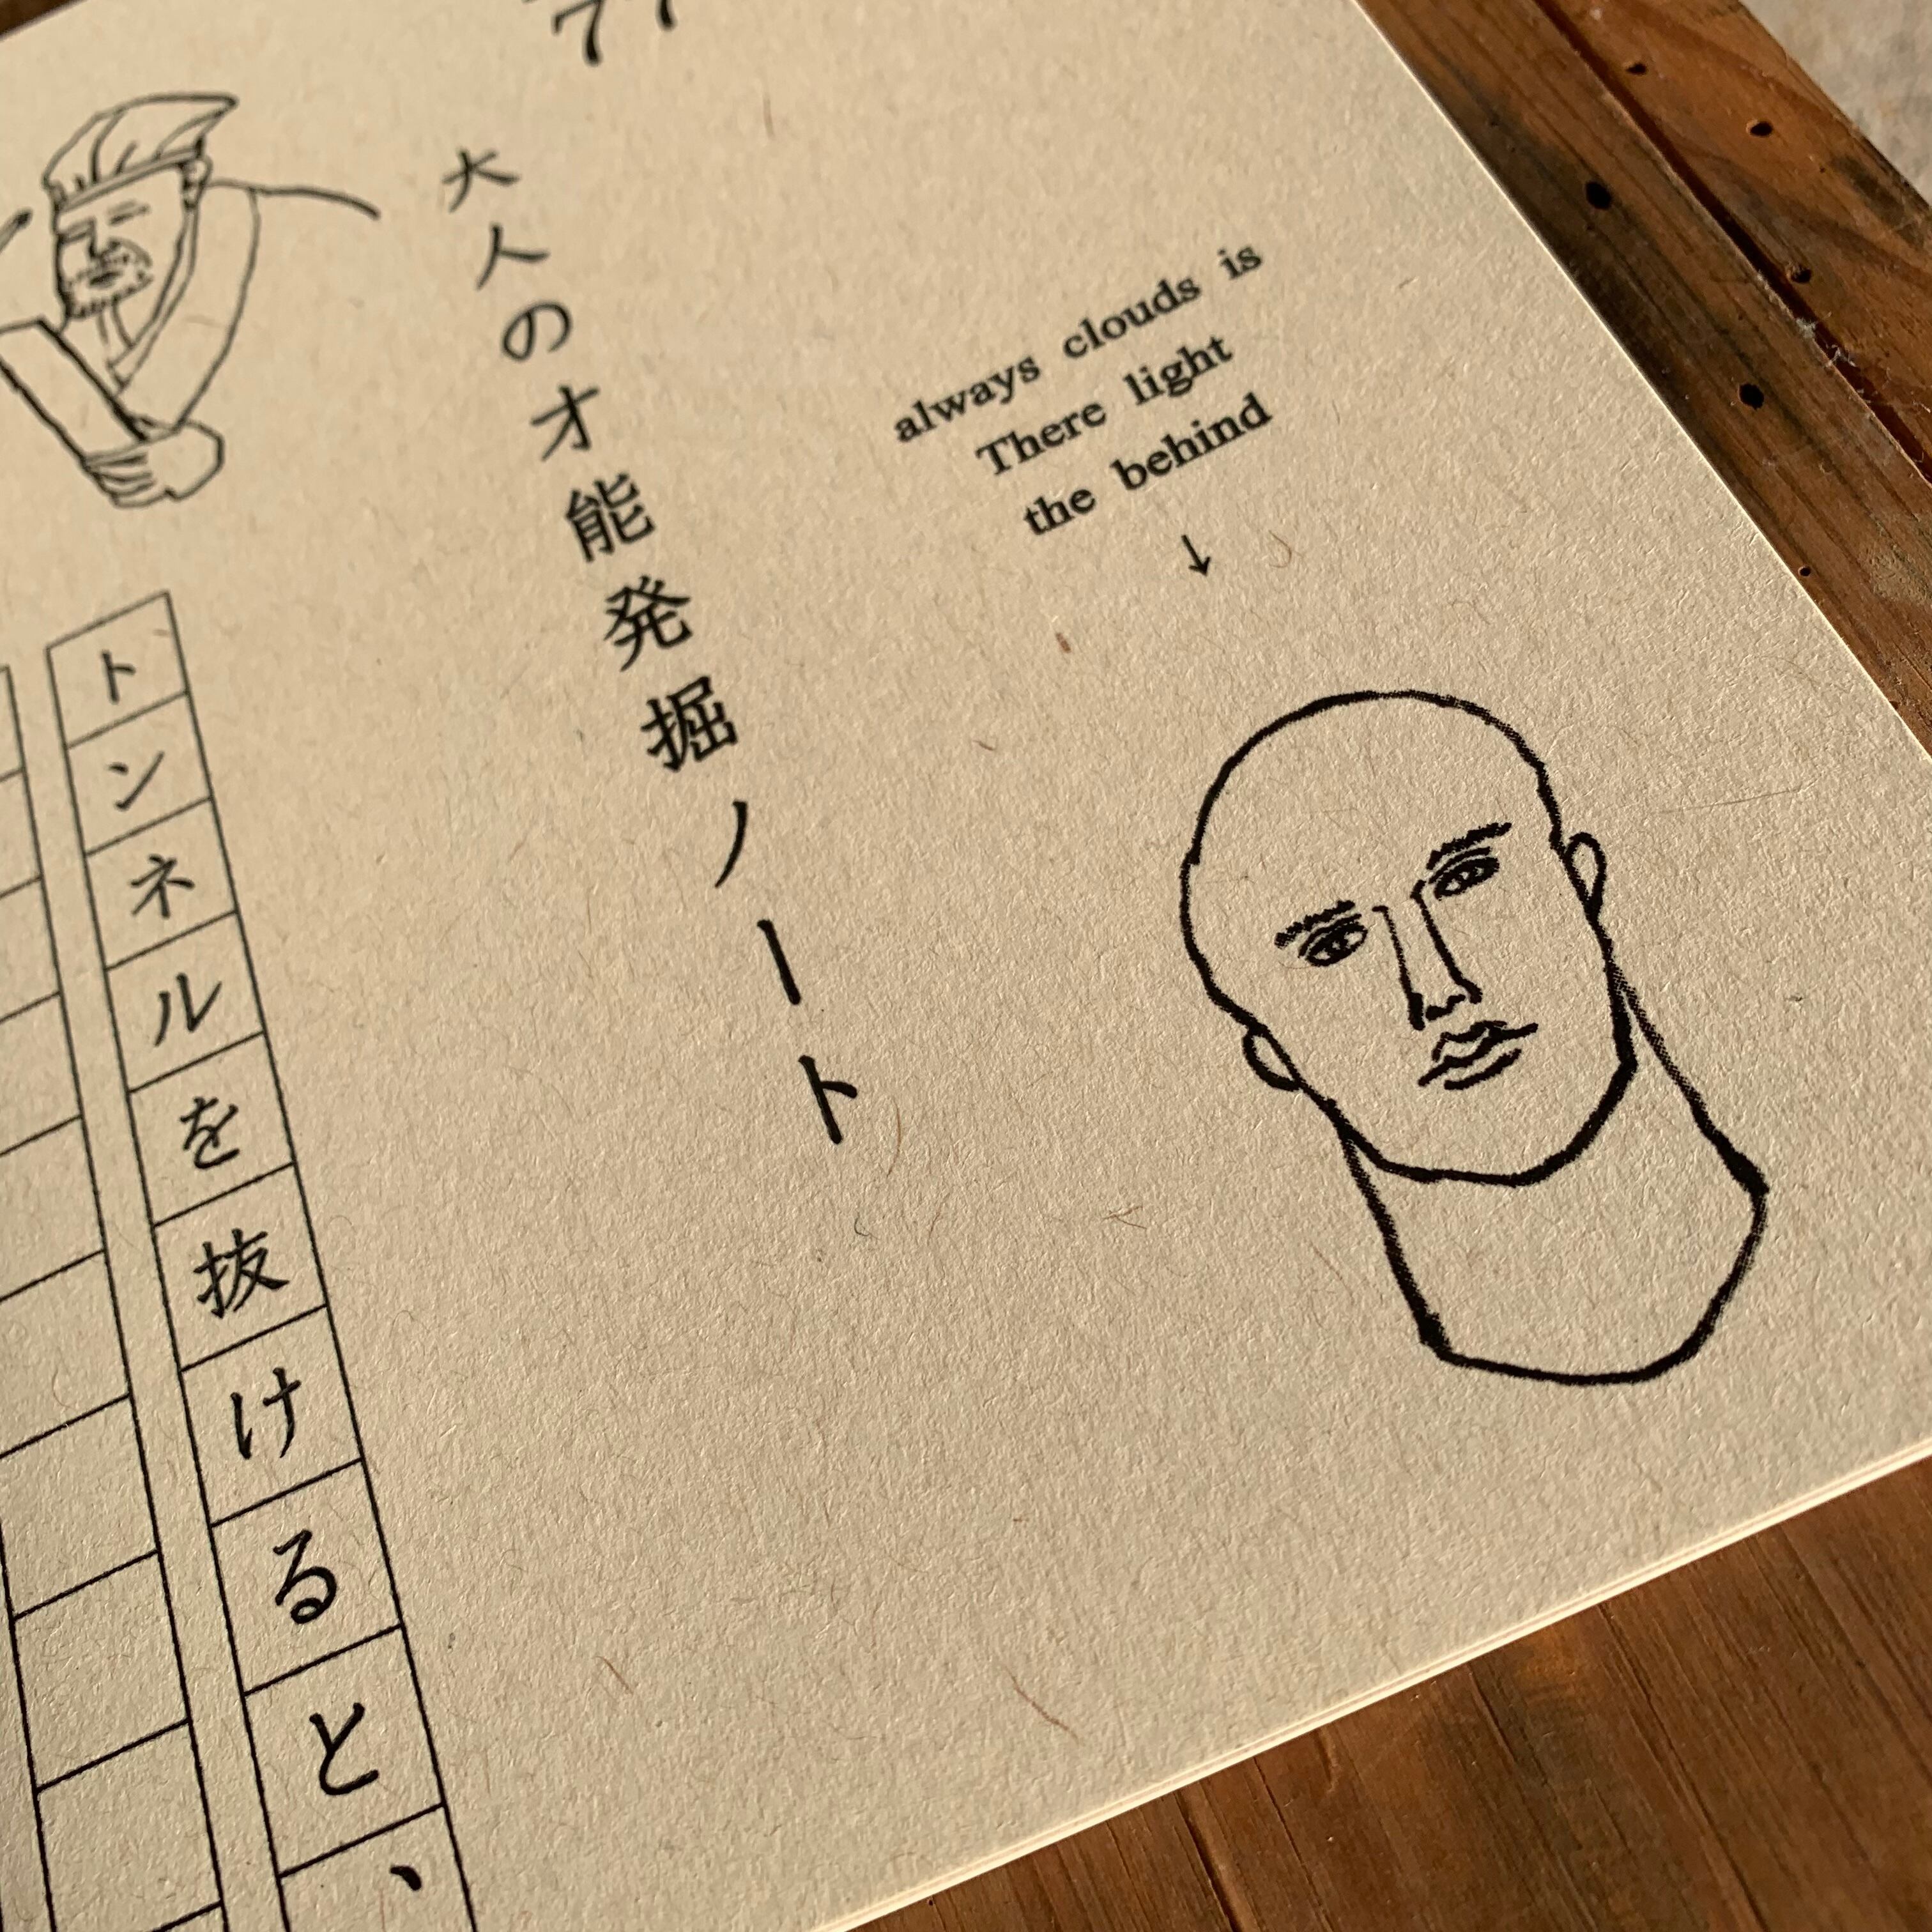 always clouds is
There light
the behind
↓
大人の才能発掘ノート
トンネルを抜けると、